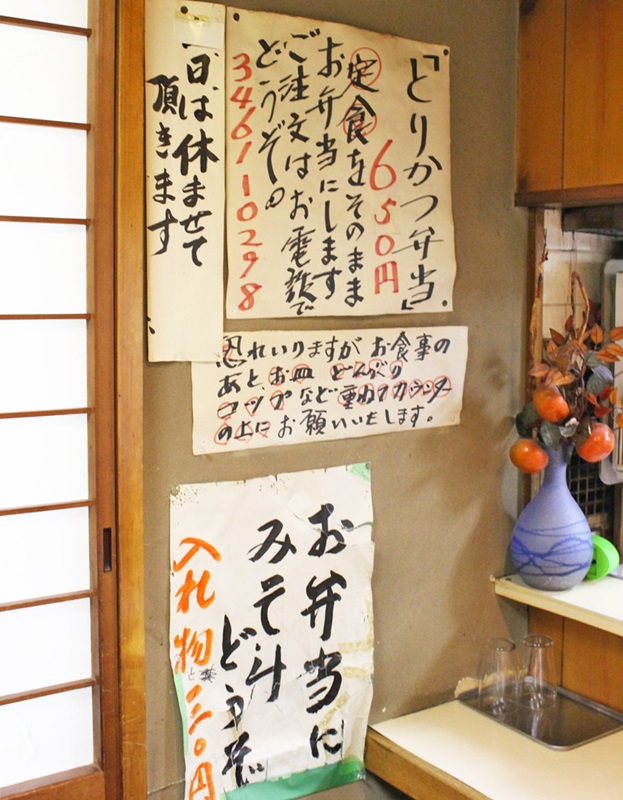 「とりかつ弁当」
650円
定食をそのまま
お弁当にします
ご注文はお電話で
どうぞ。
3461 10298
日は休ませて
頂きます
恐れいりますが お食事の
あと、お皿 どんぶり
コップなど重ねてカウンター
の上にお願いいたします。
お弁当に
みそ汁
どうぞ
入れ物
と共
円